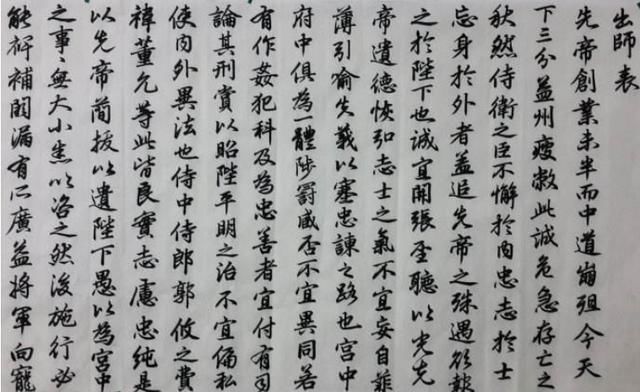 出師表
先帝創業未半而中道崩殂今天
下三分益州疲敝此誠危急存亡之
秋然侍衛之臣不懈於內忠志於士
忘身於外者蓋追先帝之殊遇欲報
之於陛下也誠宜開張聖聽以光先
帝遺德恢弘志士之氣不宜妄自菲
薄引喻失義以塞忠諫之路也宮中
府中俱為一體陟罰臧否不宜異同若
有作姦犯科及為忠善者宜付有司
論其刑賞以昭陛平明之治不宜偏私
使內外異法也侍中侍郎郭攸之費
禕董允等此皆良實志慮忠純是
以先帝簡拔以遺陛下愚以為宮中
之事〻無大小悉以咨之然後施行必
能裨補闕漏有所廣益將軍向寵